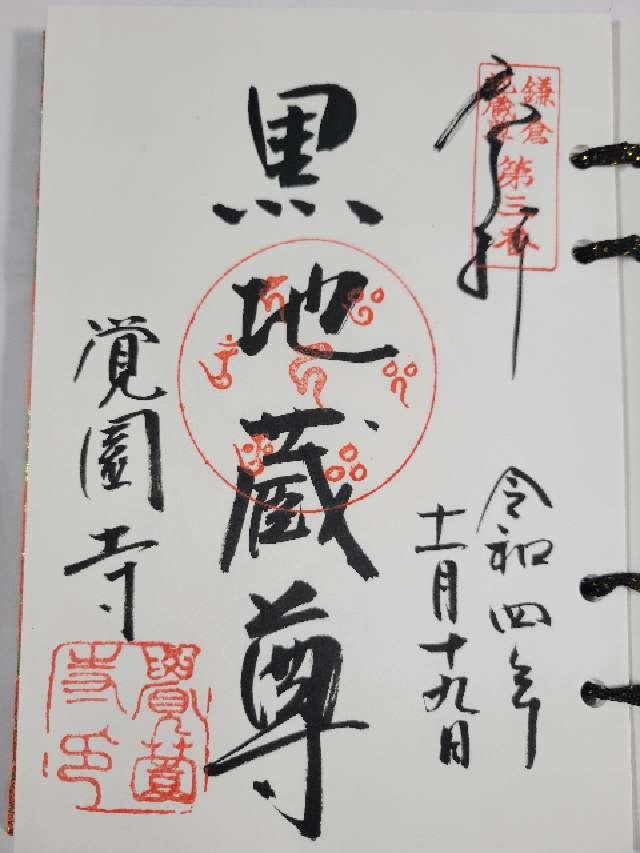 奉拝
鎌倉
地蔵尊
第三番
令和四年
十一月十九日
黒地蔵尊
覚園寺
覺園
寺印